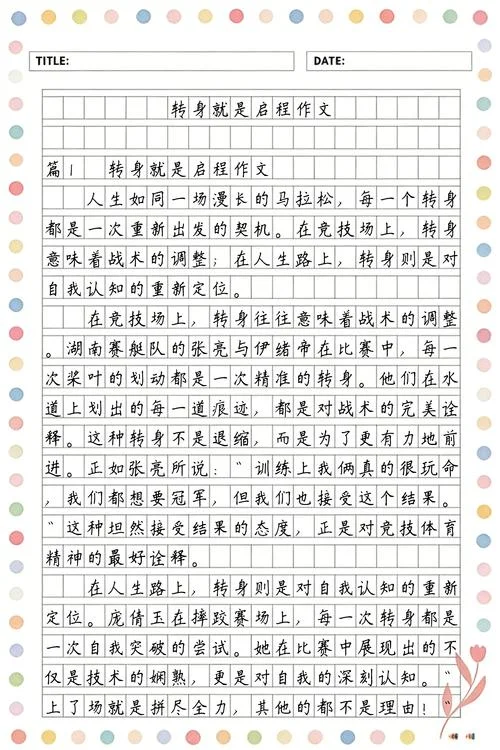 TITLE:
DATE:
转身就是启程作文
篇1 转身就是启程作文
人生如同一场漫长的马拉松，每一个转身
都是一次重新出发的契机。在竞技场上，转身
意味着战术的调整；在人生路上，转身则是对
自我认知的重新定位。
在竞技场上，转身往往意味着战术的调整
。湖南赛艇队的张亮与伊绪帝在比赛中，每一
次桨叶的划动都是一次精准的转身。他们在水
道上划出的每一道痕迹，都是对战术的完美诠
释。这种转身不是退缩，而是为了更有力地前
进。正如张亮所说：“训练上我俩真的很玩命
，我们都想要冠军，但我们也接受这个结果。
“这种坦然接受结果的态度，正是对竞技体育
精神的最好诠释。
在人生路上，转身则是对自我认知的重新
定位。庞倩玉在摔跤赛场上，每一次转身都是
一次自我突破的尝试。她在比赛中展现出的不
仅是技术的娴熟，更是对自我的深刻认知。“
上了场就是拼尽全力，其他的都不是理由！“